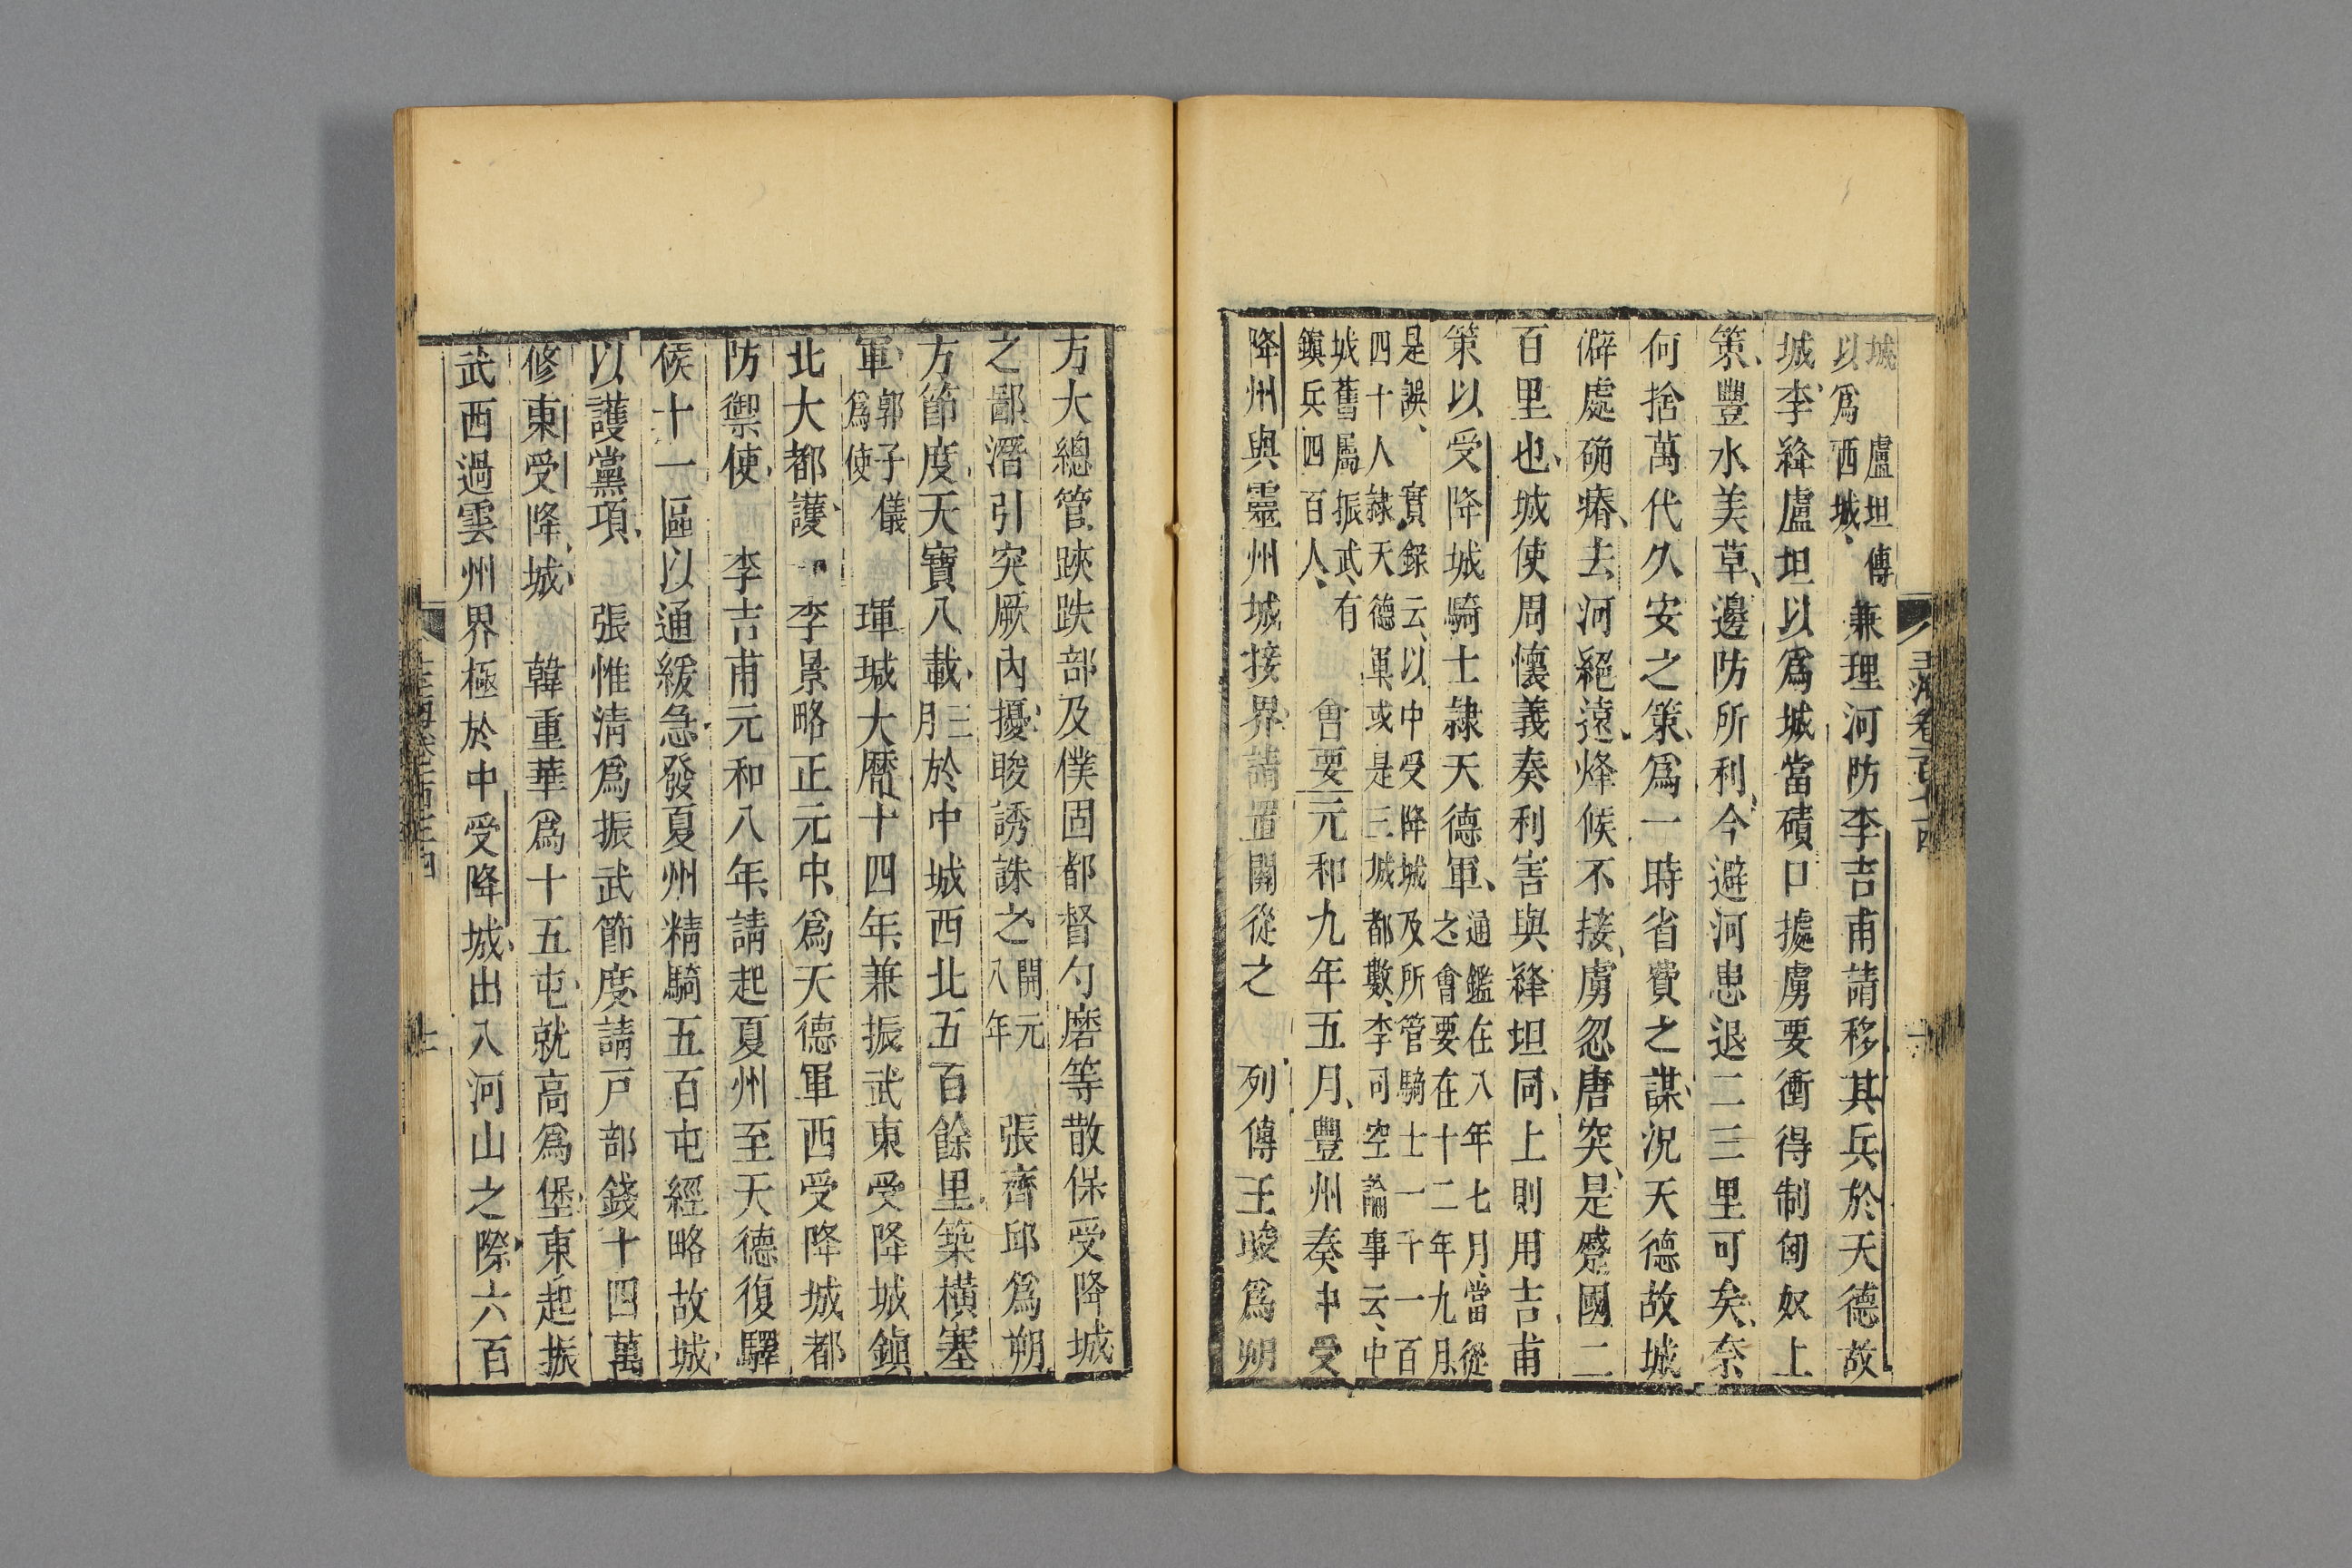 城以爲西城、盧坦傳兼理河防李吉甫請移其兵於天德故
城李絳盧坦以爲城當磧口據虜要衝得制匈奴上
策豐水美草邊防所利今避河患退二三里可矣奈
何捨萬代久安之策爲一時省費之謀況天德故城
僻處确瘠去河絕遠烽候不接虜忽唐突是蹙國二
百里也城使周懷義奏利害與絳坦同上則用吉甫
策以受降城騎士隸天德軍、通鑑在八年七月當從之會要在十二年九月
是誤、實錄云以中受降城及所管騎士一千一百四十人隸天德軍或是三城都數李司空論事云中
城舊屬振武有鎮兵四百人、會要元和九年五月豐州奏中受
降州與靈州城接界請置關從之 列傳王晙爲朔
方大總管𨁂跌部及僕固都督勺磨等散保受降城
之鄙潛引突厥內擾晙誘誅之開元八年 張齊邱爲朔
方節度天寶八載三月於中城西北五百餘里築橫塞
軍郭子儀爲使 琿瑊大曆十四年兼振武東受降城鎮
北大都護 李景略正元中爲天德軍西受降城都
防禦使 李吉甫元和八年請起夏州至天德復驛
候十一區以通緩急發夏州精騎五百屯經略故城
以護黨項 張惟清爲振武節度請戶部錢十四萬
修東受降城 韓重華爲十五屯就高爲堡東起振
武西過雲州界極於中受降城出入河山之際六百